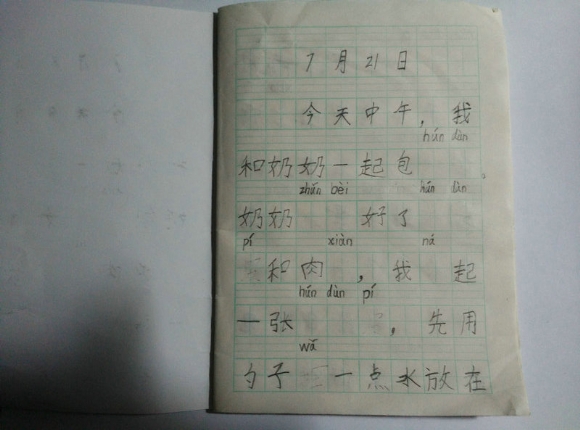 7月21日
今天中午，我
hún dùn
和奶奶一起包 。
zhǔn bèi hún dùn
奶奶 好了
pí xiàn ná
和肉，我 起
hún dùn pí
一张 ，先用
wā
勺子 一点水放在